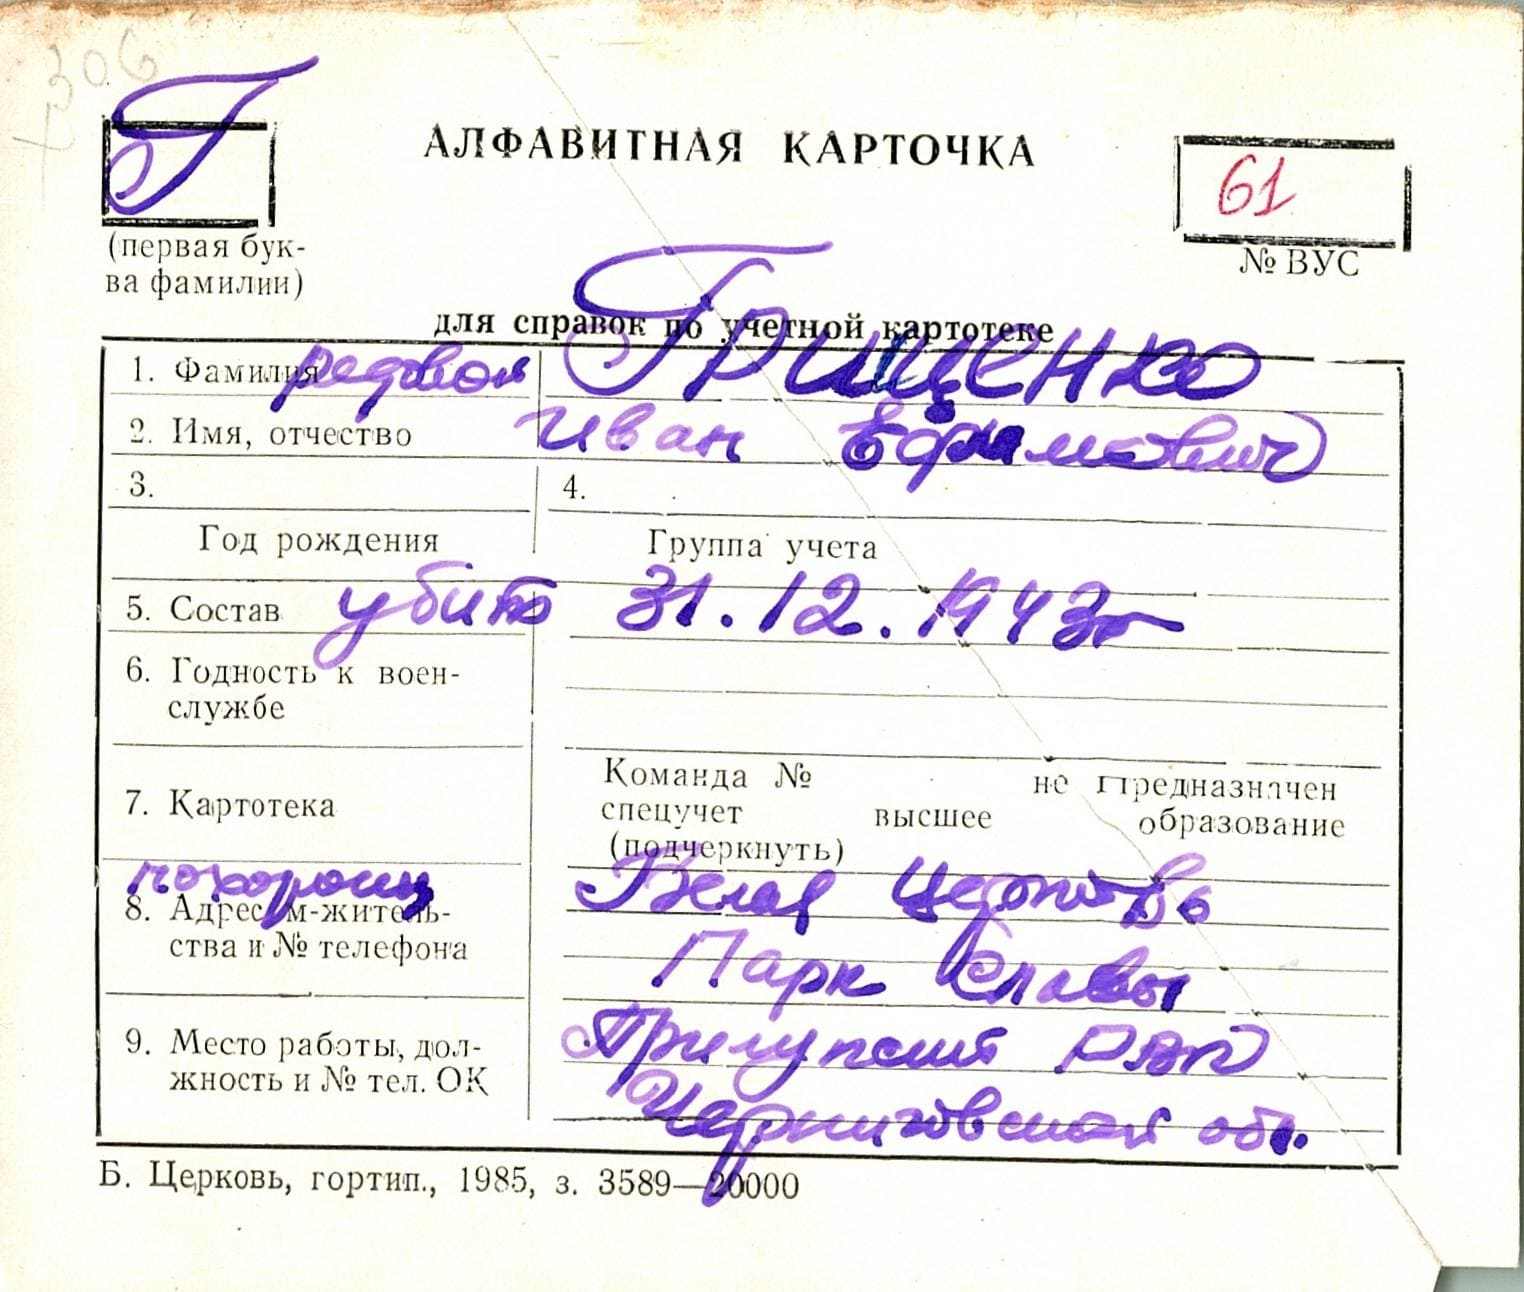 306
Г
АЛФАВИТНАЯ КАРТОЧКА
61
(первая бук-
ва фамилии)
№ ВУС
для справок по учетной картотеке
1. Фамилия рядовой Грищенко
2. Имя, отчество Иван Ефимович
3. 4.
Год рождения Группа учета
5. Состав убит 31.12.1943г
6. Годность к воен-
службе
7. Картотека
Команда № не предназначен
спецучет высшее образование
(подчеркнуть)
похоронен Белая Церковь
8. Адрес м-житель-
ства и № телефона
Парк Славы
9. Место работы, дол-
жность и № тел. ОК
Прилупский РВК
Черниговская обл.
Б. Церковь, гортип., 1985, з. 3589—20000